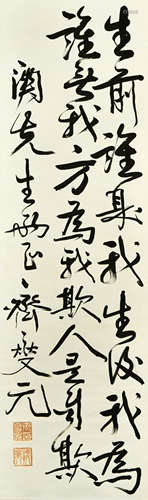 生前誰是我生後我為
誰無我方為我欺人是自欺
先生正齊燮元